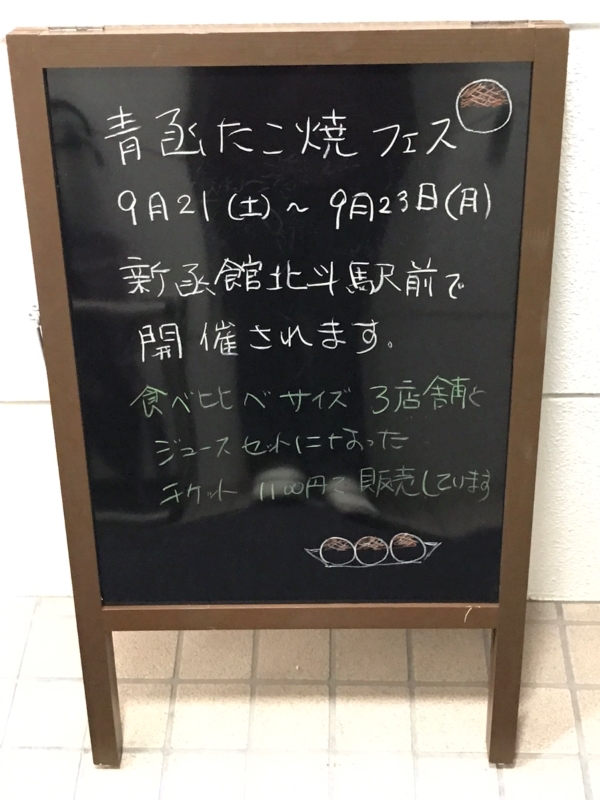 青函たこ焼フェス
9月21(土)～9月23日(月)
新函館北斗駅前で
開催されます。
食べ比べサイズ 3店舗と
ジュースセットになった
チケット 1100円で販売しています